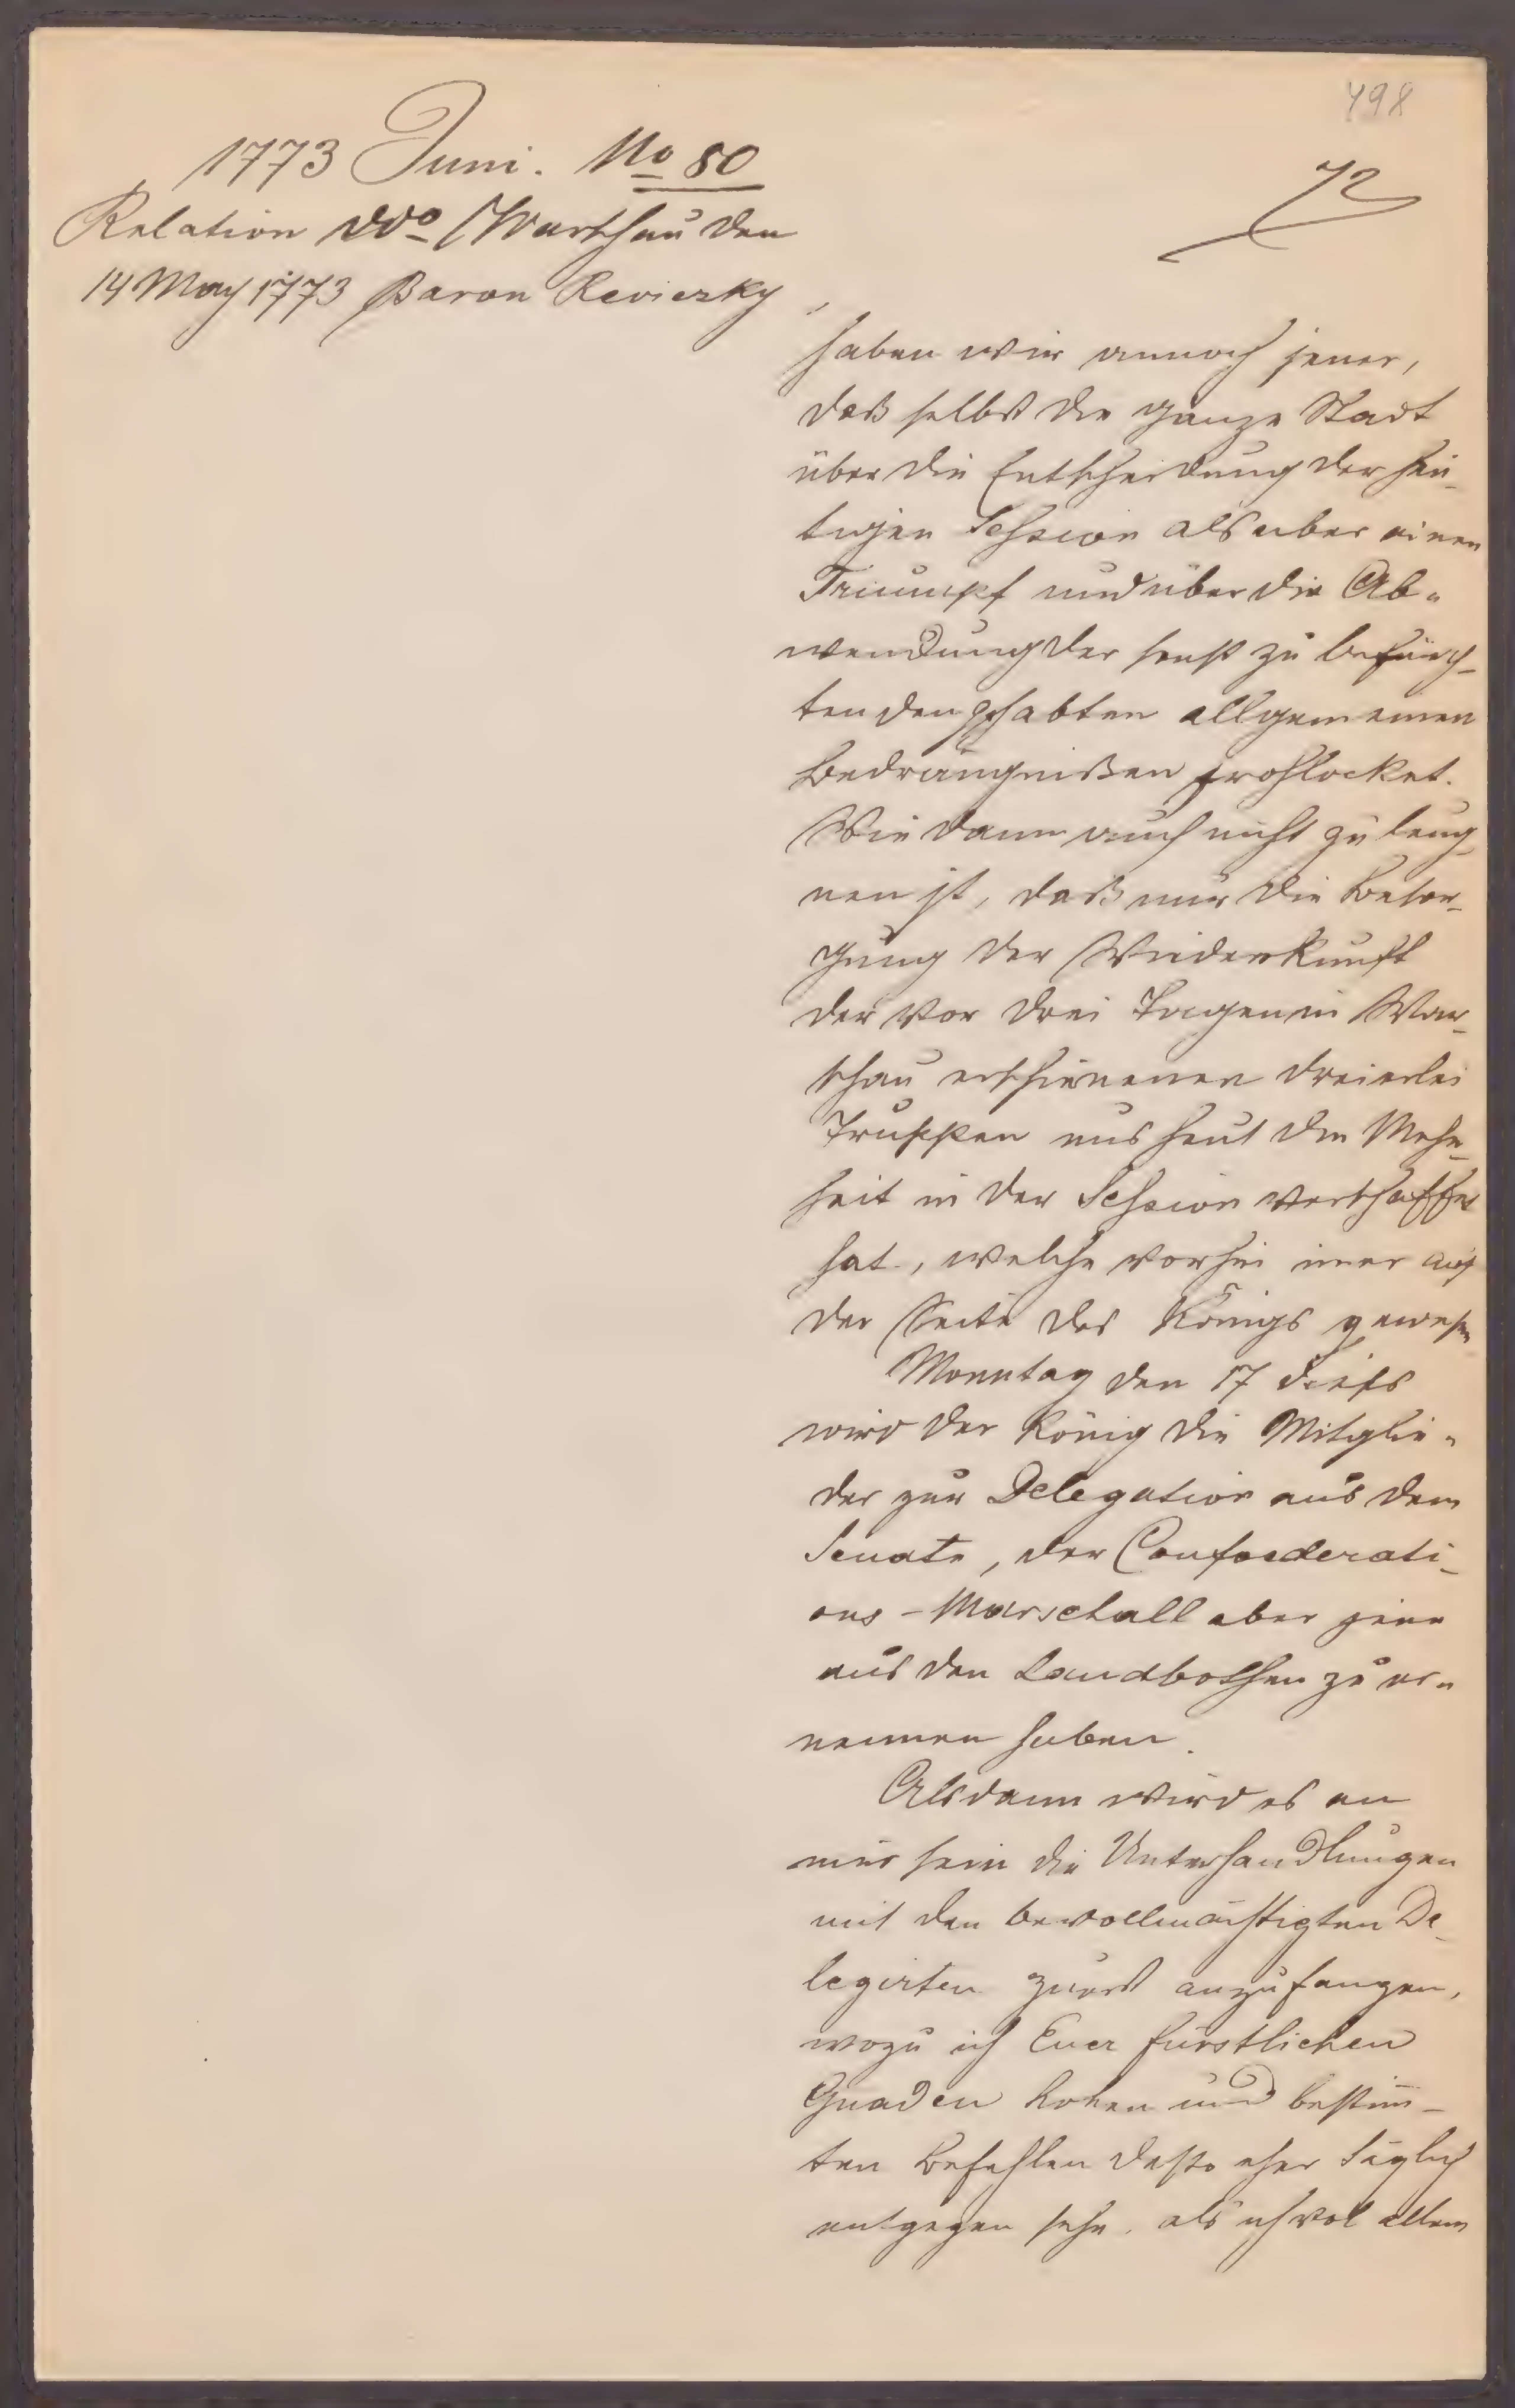 498
1773 Juni. No 80
72
Relation ddo Warschau den
14 May 1773 Baron Reviczky
haben wir annoch jener,
daß selbst die ganze Stadt
über die Entscheidung der heu-
tigen Session als über einen
Triumpf und über die Ab-
wendung der sonst zu befürch-
tenden gehabten allgemeinen
Bedrängnißen frohlocket.
Wie dann auch nicht zu leug
nen ist, daß nur die Besor-
gung der Wiederkunft
der vor drei Tagen in War-
schau erschienenen dreierlei
Truppen uns heut die Mehr-
heit in der Session verschaffet
hat, welche vorhin imer auf
der Seite des Königs gewesen
Monntag den 17 dieß
wird der König die Mitglie-
der zur Delegation aus dem
Senate, der Confoederati-
ons-Marschall aber jene
aus den Landbothen zu er-
nennen haben.
Alsdann wird es an
mir sein die Unterhandlungen
mit den bevollmächtigten De-
legirten zuerst anzufangen,
wozu ich Euer fürstlichen
Gnaden hohen und bestim-
ten Befehlen desto eher täglich
entgegen sehe, als ich allem